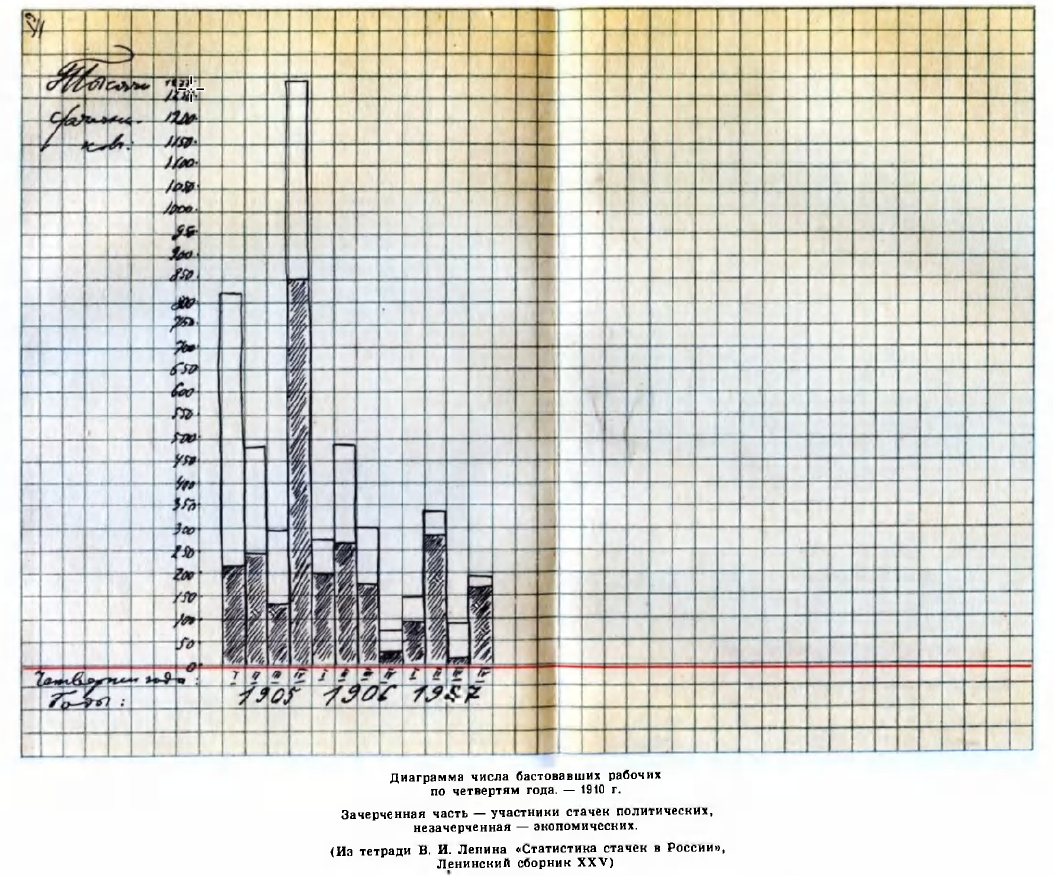 Тысячи
стачечни-
ков:
1250
1200
1150
1100
1050
1000
950
900
850
800
750
700
650
600
550
500
450
400
350
300
250
200
150
100
50
0
Четверти года: I II III IV I II III IV I II III IV
Годы: 1905 1906 1907
Диаграмма числа бастовавших рабочих
по четвертям года. — 1910 г.
Зачерченная часть — участники стачек политических,
незачерченная — экономических.
(Из тетради В. И. Ленина «Статистика стачек в России»,
Ленинский сборник XXV)